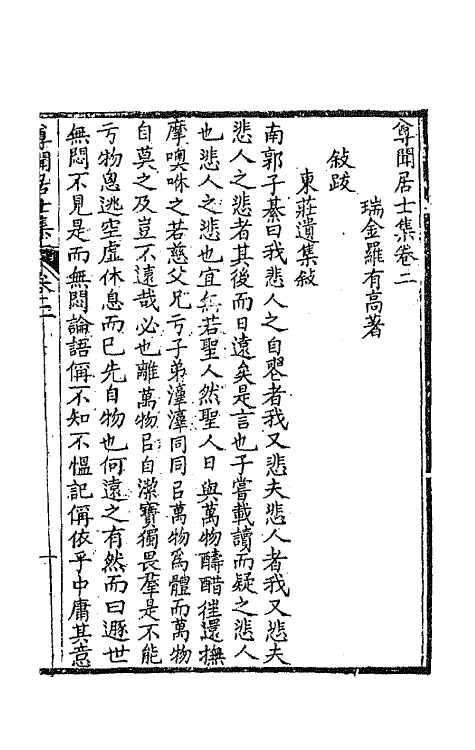 尊聞居士集卷二
瑞金羅有高著
敍跋
東莊遺集敍
南郭子綦曰我悲人之自喪者我又悲夫悲人者我又悲夫
悲人之悲者其後而日遠矣是言也予嘗載讀而疑之悲人
也悲人之悲也宜無若聖人然聖人日與萬物醻醋徃還撫
摩噢咻之若慈父兄亏子弟潬潬同同㠯萬物爲體而萬物
自莫之及豈不遠哉必也離萬物㠯自潔寶獨畏羣是不能
亏物息逃空虛休息而已先自物也何遠之有然而曰遯世
無悶不見是而無悶論語偁不知不慍記偁依乎中庸其意
尊聞居士集
卷二
一